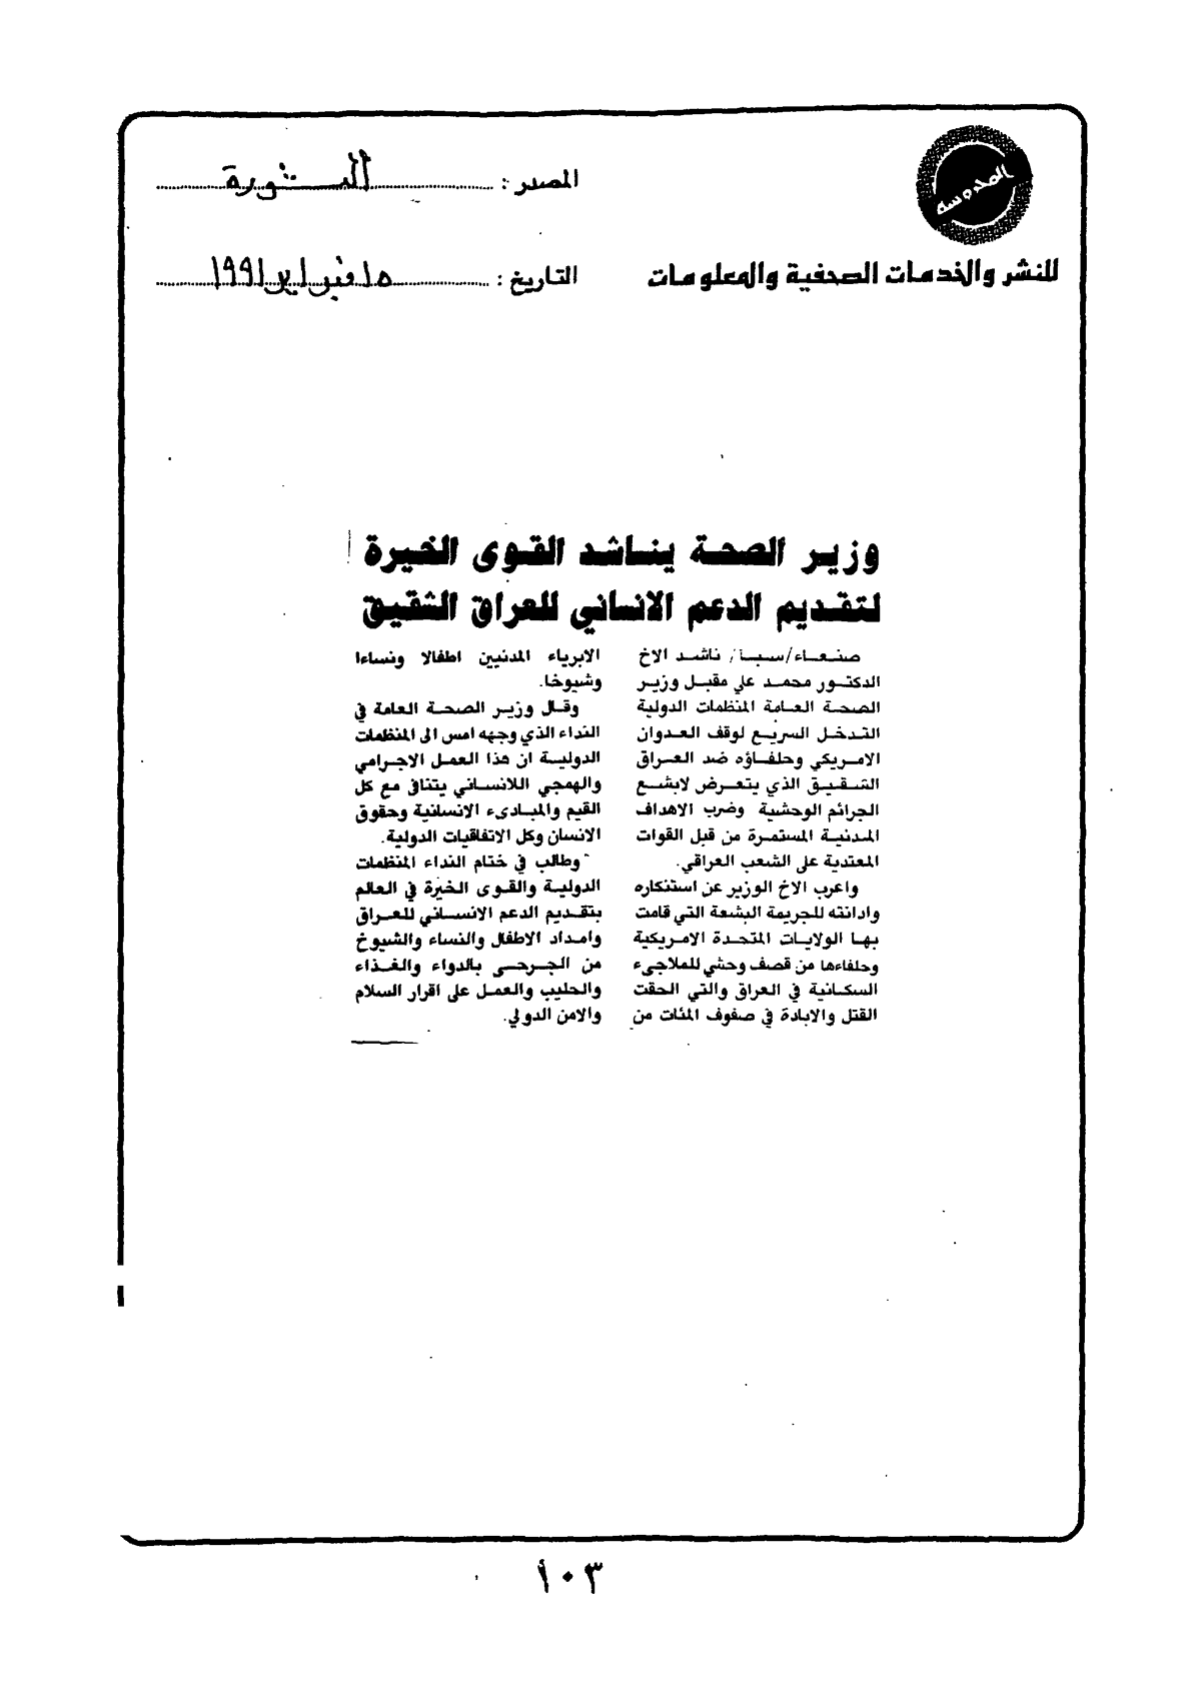 المحروسه
للنشر والخدمات الصحفية والمعلومات
المصدر : الثورة
التاريخ : ١٥ فبراير ١٩٩١
وزير الصحة يناشد القوى الخيرة
لتقديم الدعم الانساني للعراق الشقيق
صنعاء/سبأ/ ناشد الاخ
الدكتور محمد علي مقبل وزير
الصحة العامة المنظمات الدولية
التدخل السريع لوقف العدوان
الامريكي وحلفاؤه ضد العراق
الشقيق الذي يتعرض لابشع
الجرائم الوحشية وضرب الاهداف
المدنية المستمرة من قبل القوات
المعتدية على الشعب العراقي.
واعرب الاخ الوزير عن استنكاره
وادانته للجريمة البشعة التي قامت
بها الولايات المتحدة الامريكية
وحلفاءها من قصف وحشي للملاجىء
السكانية في العراق والتي الحقت
القتل والابادة في صفوف المئات من
الابرياء المدنيين اطفالا ونساءا
وشيوخا.
وقال وزير الصحة العامة في
النداء الذي وجهه امس الى المنظمات
الدولية ان هذا العمل الاجرامي
والهمجي اللانساني يتنافى مع كل
القيم والمبادىء الانسانية وحقوق
الانسان وكل الاتفاقيات الدولية.
وطالب في ختام النداء المنظمات
الدولية والقوى الخيرة في العالم
بتقديم الدعم الانساني للعراق
وامداد الاطفال والنساء والشيوخ
من الجرحى بالدواء والغذاء
والحليب والعمل على اقرار السلام
والامن الدولي.
١٠٣